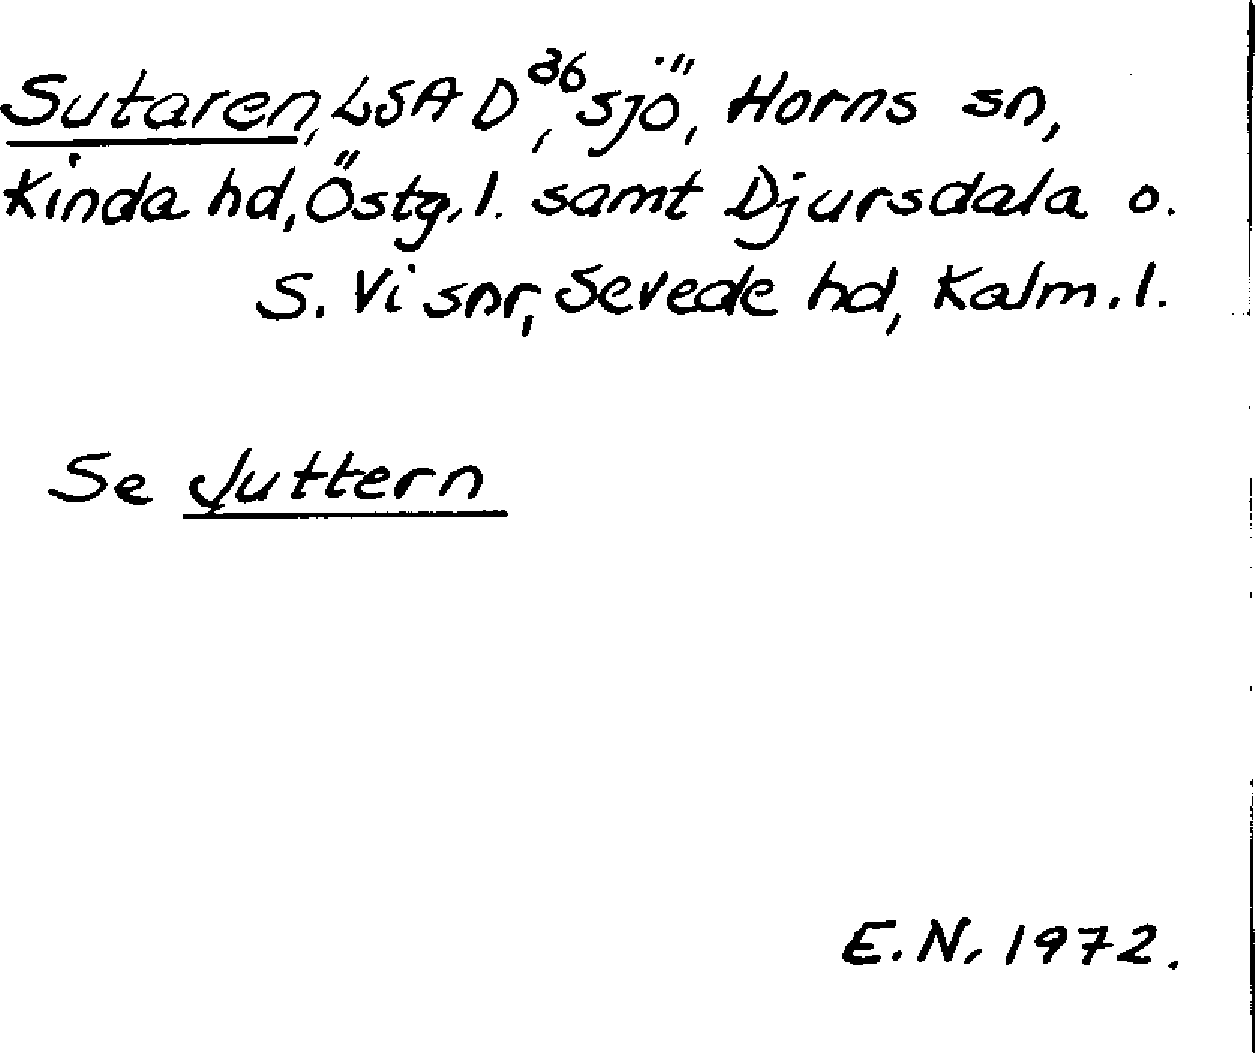 Sutaren, LSA D³⁶, sjö, Horns sn,
Kinda hd, Östg. l. samt Djursdala o.
S. Vi snr, Sevede hd, Kalm. l.
Se Juttern
E.N. 1972.